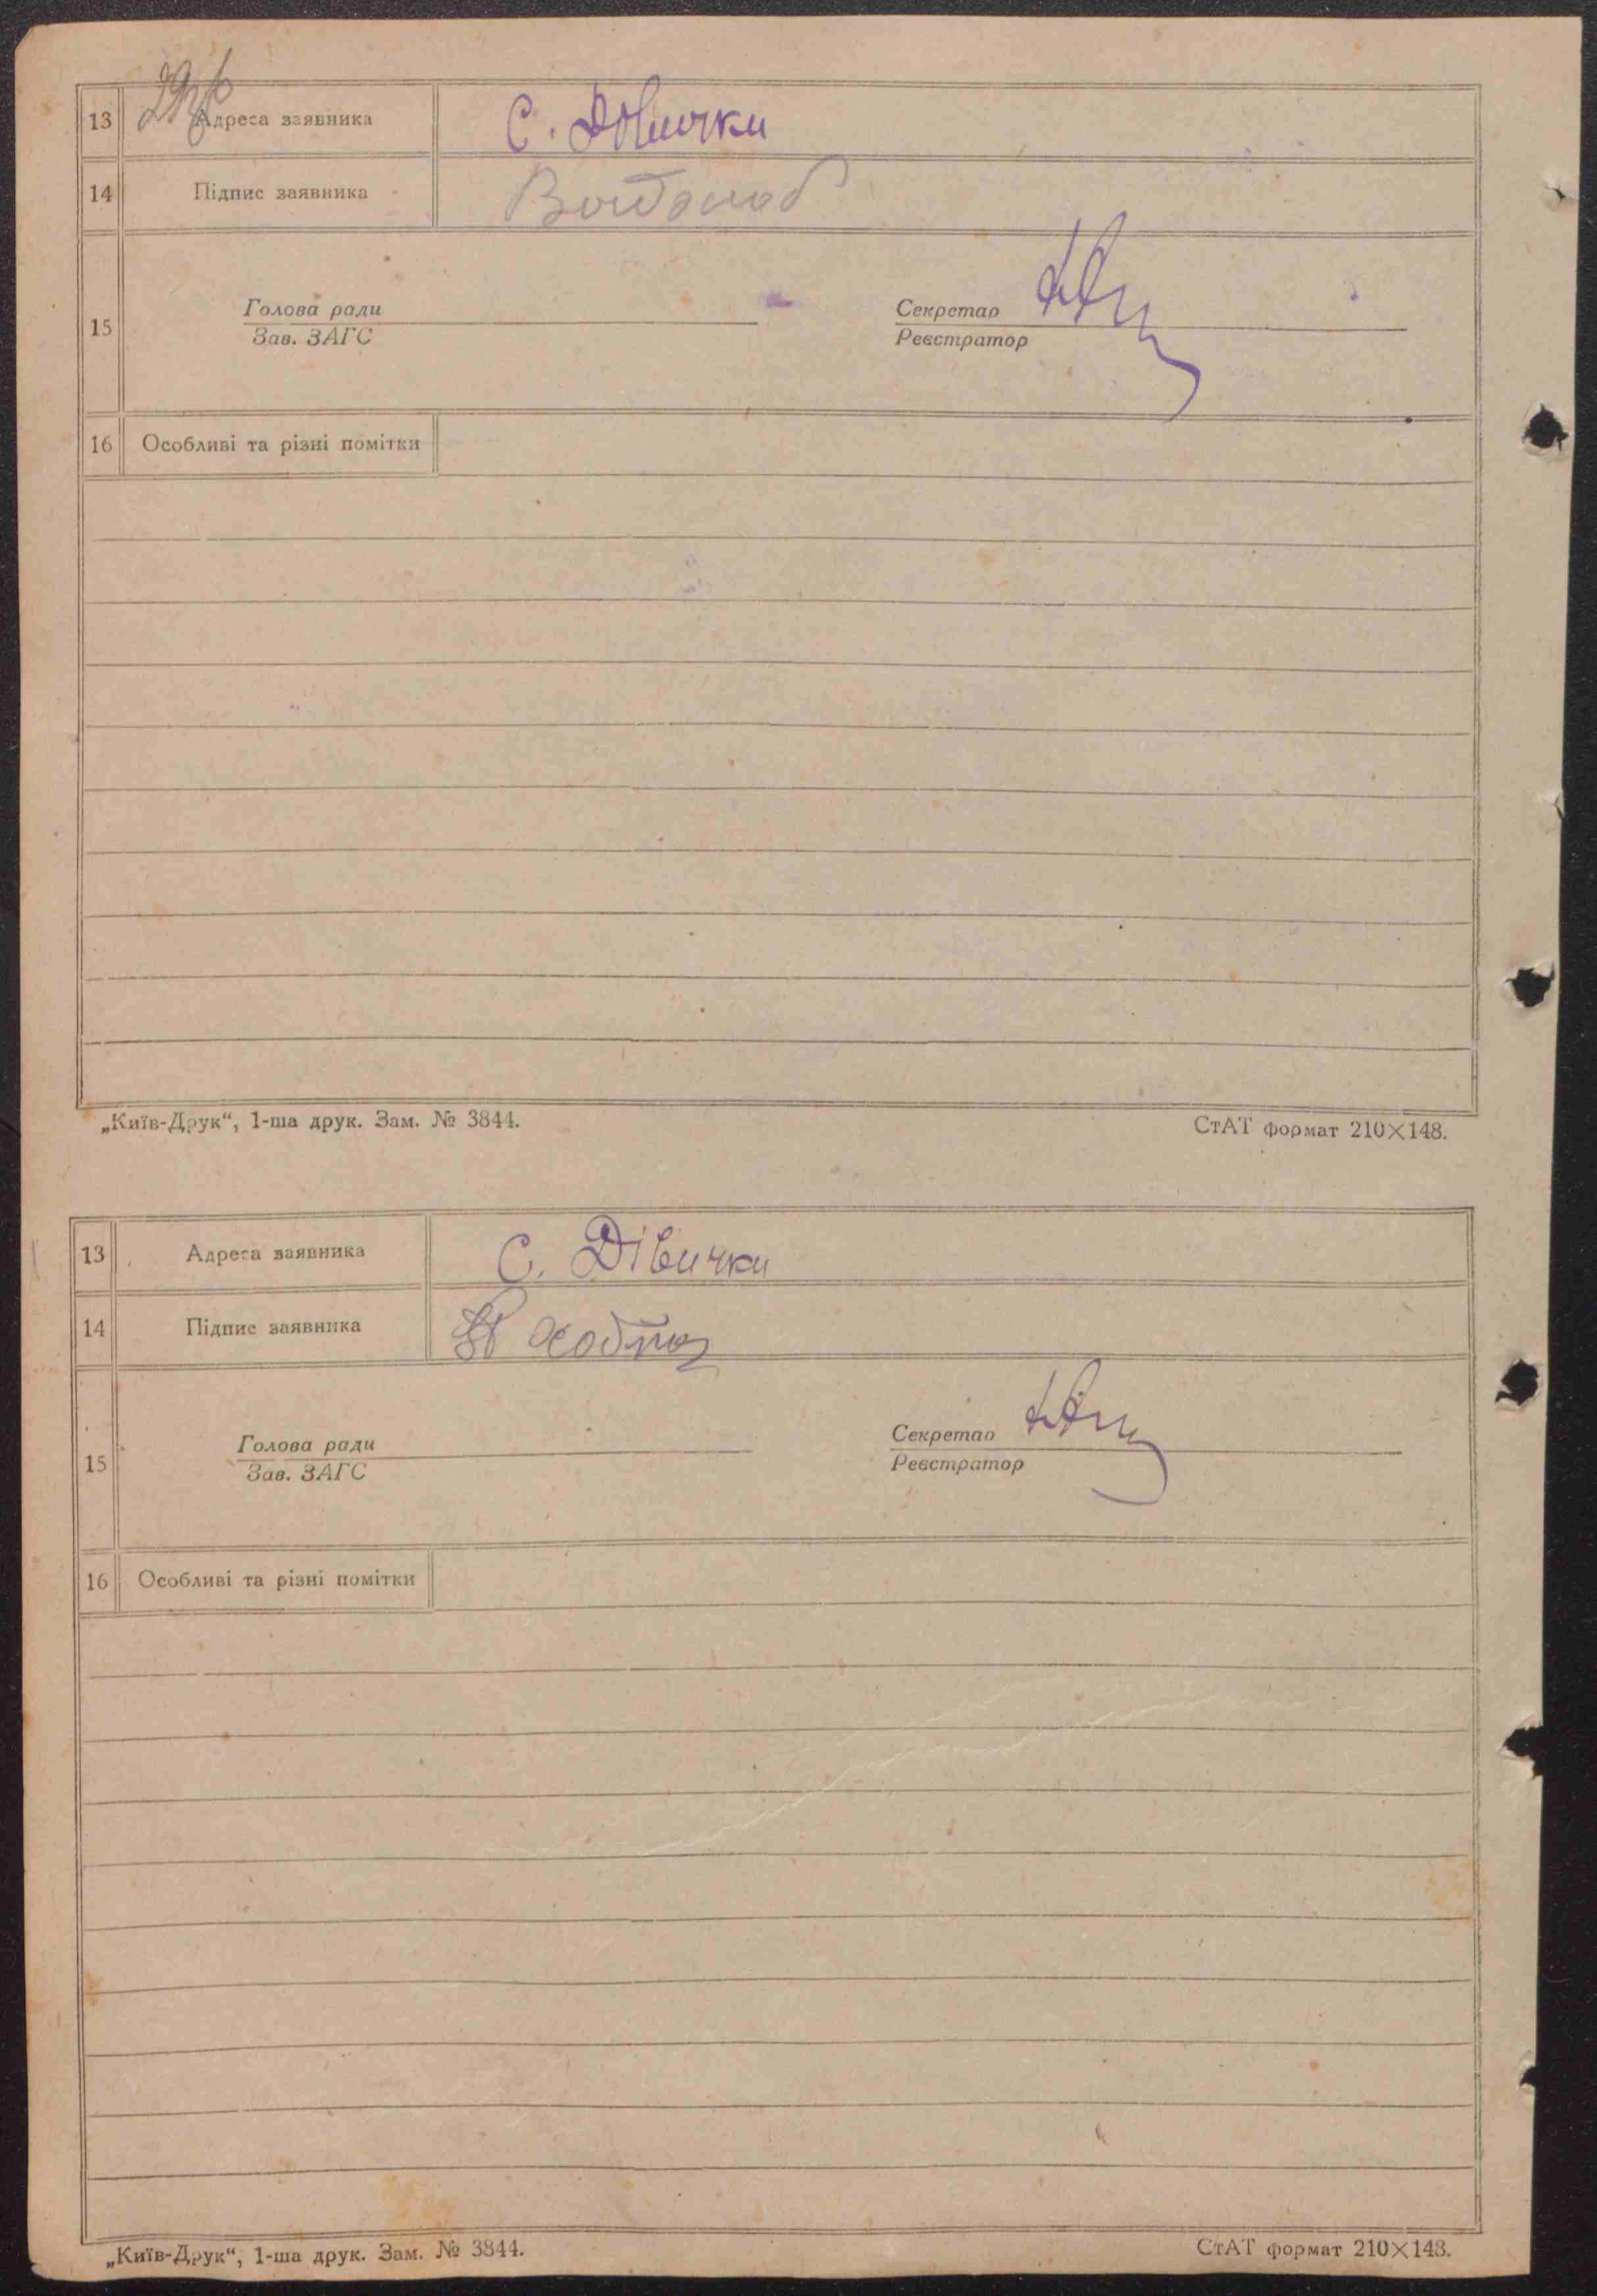 13 Адреса заявника С. Дівички
14 Підпис заявника
15 Голова ради Секретар
Зав. ЗАГС Реєстратор
16 Особливі та різні помітки
„Київ-Друк“, 1-ша друк. Зам. № 3844. СтАТ формат 210×148.
13 Адреса заявника С. Дівички
14 Підпис заявника
15 Голова ради Секретар
Зав. ЗАГС Реєстратор
16 Особливі та різні помітки
„Київ-Друк“, 1-ша друк. Зам. № 3844. СтАТ формат 210×148.